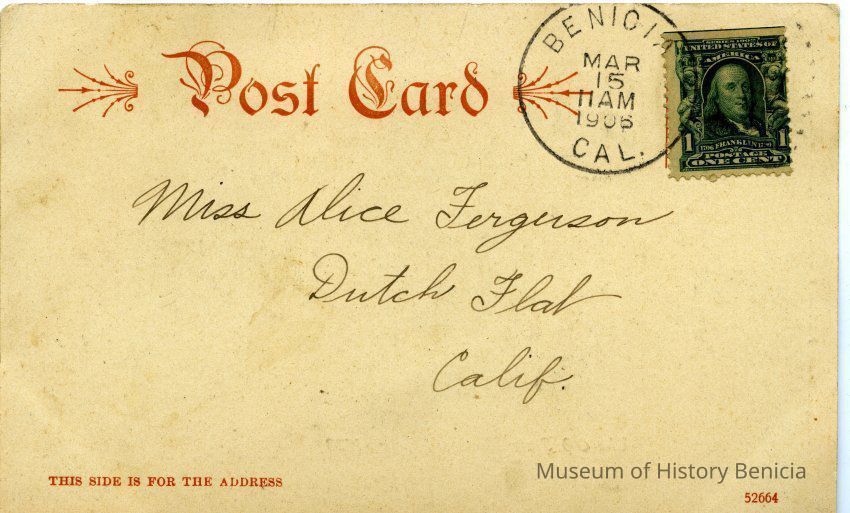 Post Card
BENICIA
MAR
15
11AM
1906
CAL.
SERIES 1902
UNITED STATES OF
AMERICA
1 1
FRANKLIN
POSTAGE
ONE CENT
Miss Alice Ferguson
Dutch Flat
Calif.
THIS SIDE IS FOR THE ADDRESS
Museum of History Benicia
52664